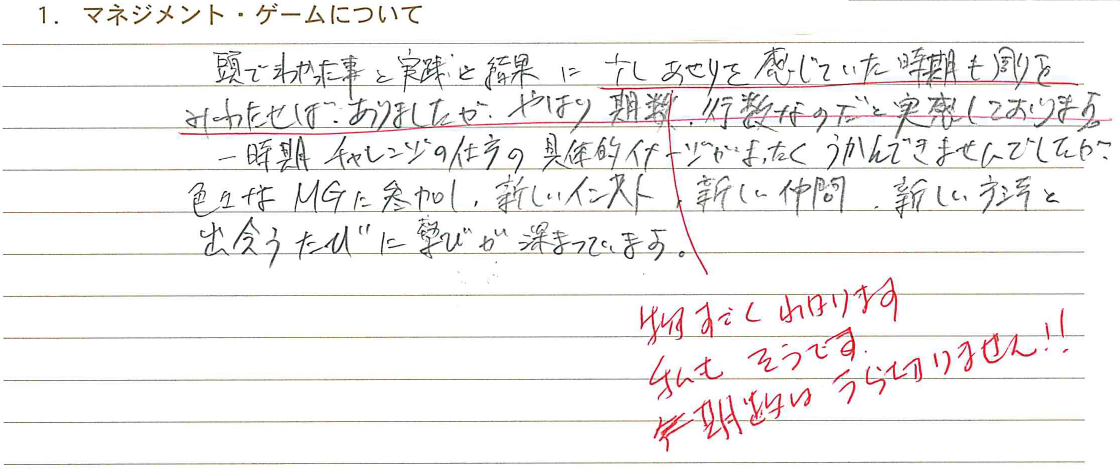 1. マネジメント・ゲームについて
頭でわかった事と実践と結果に 少しあせりを感じていた時期も周りを
みわたせば、ありましたが、やはり期数、行数なのだと実感しております。
一時期チャレンジの仕方の具体的イメージがまったくうかんできませんでしたが、
色々なMGに参加し、新しいインスト、新しい仲間、新しい
出会うたびに学びが深まっています。
物すごくわかります
私もそうです。
期数はうら切りません!!